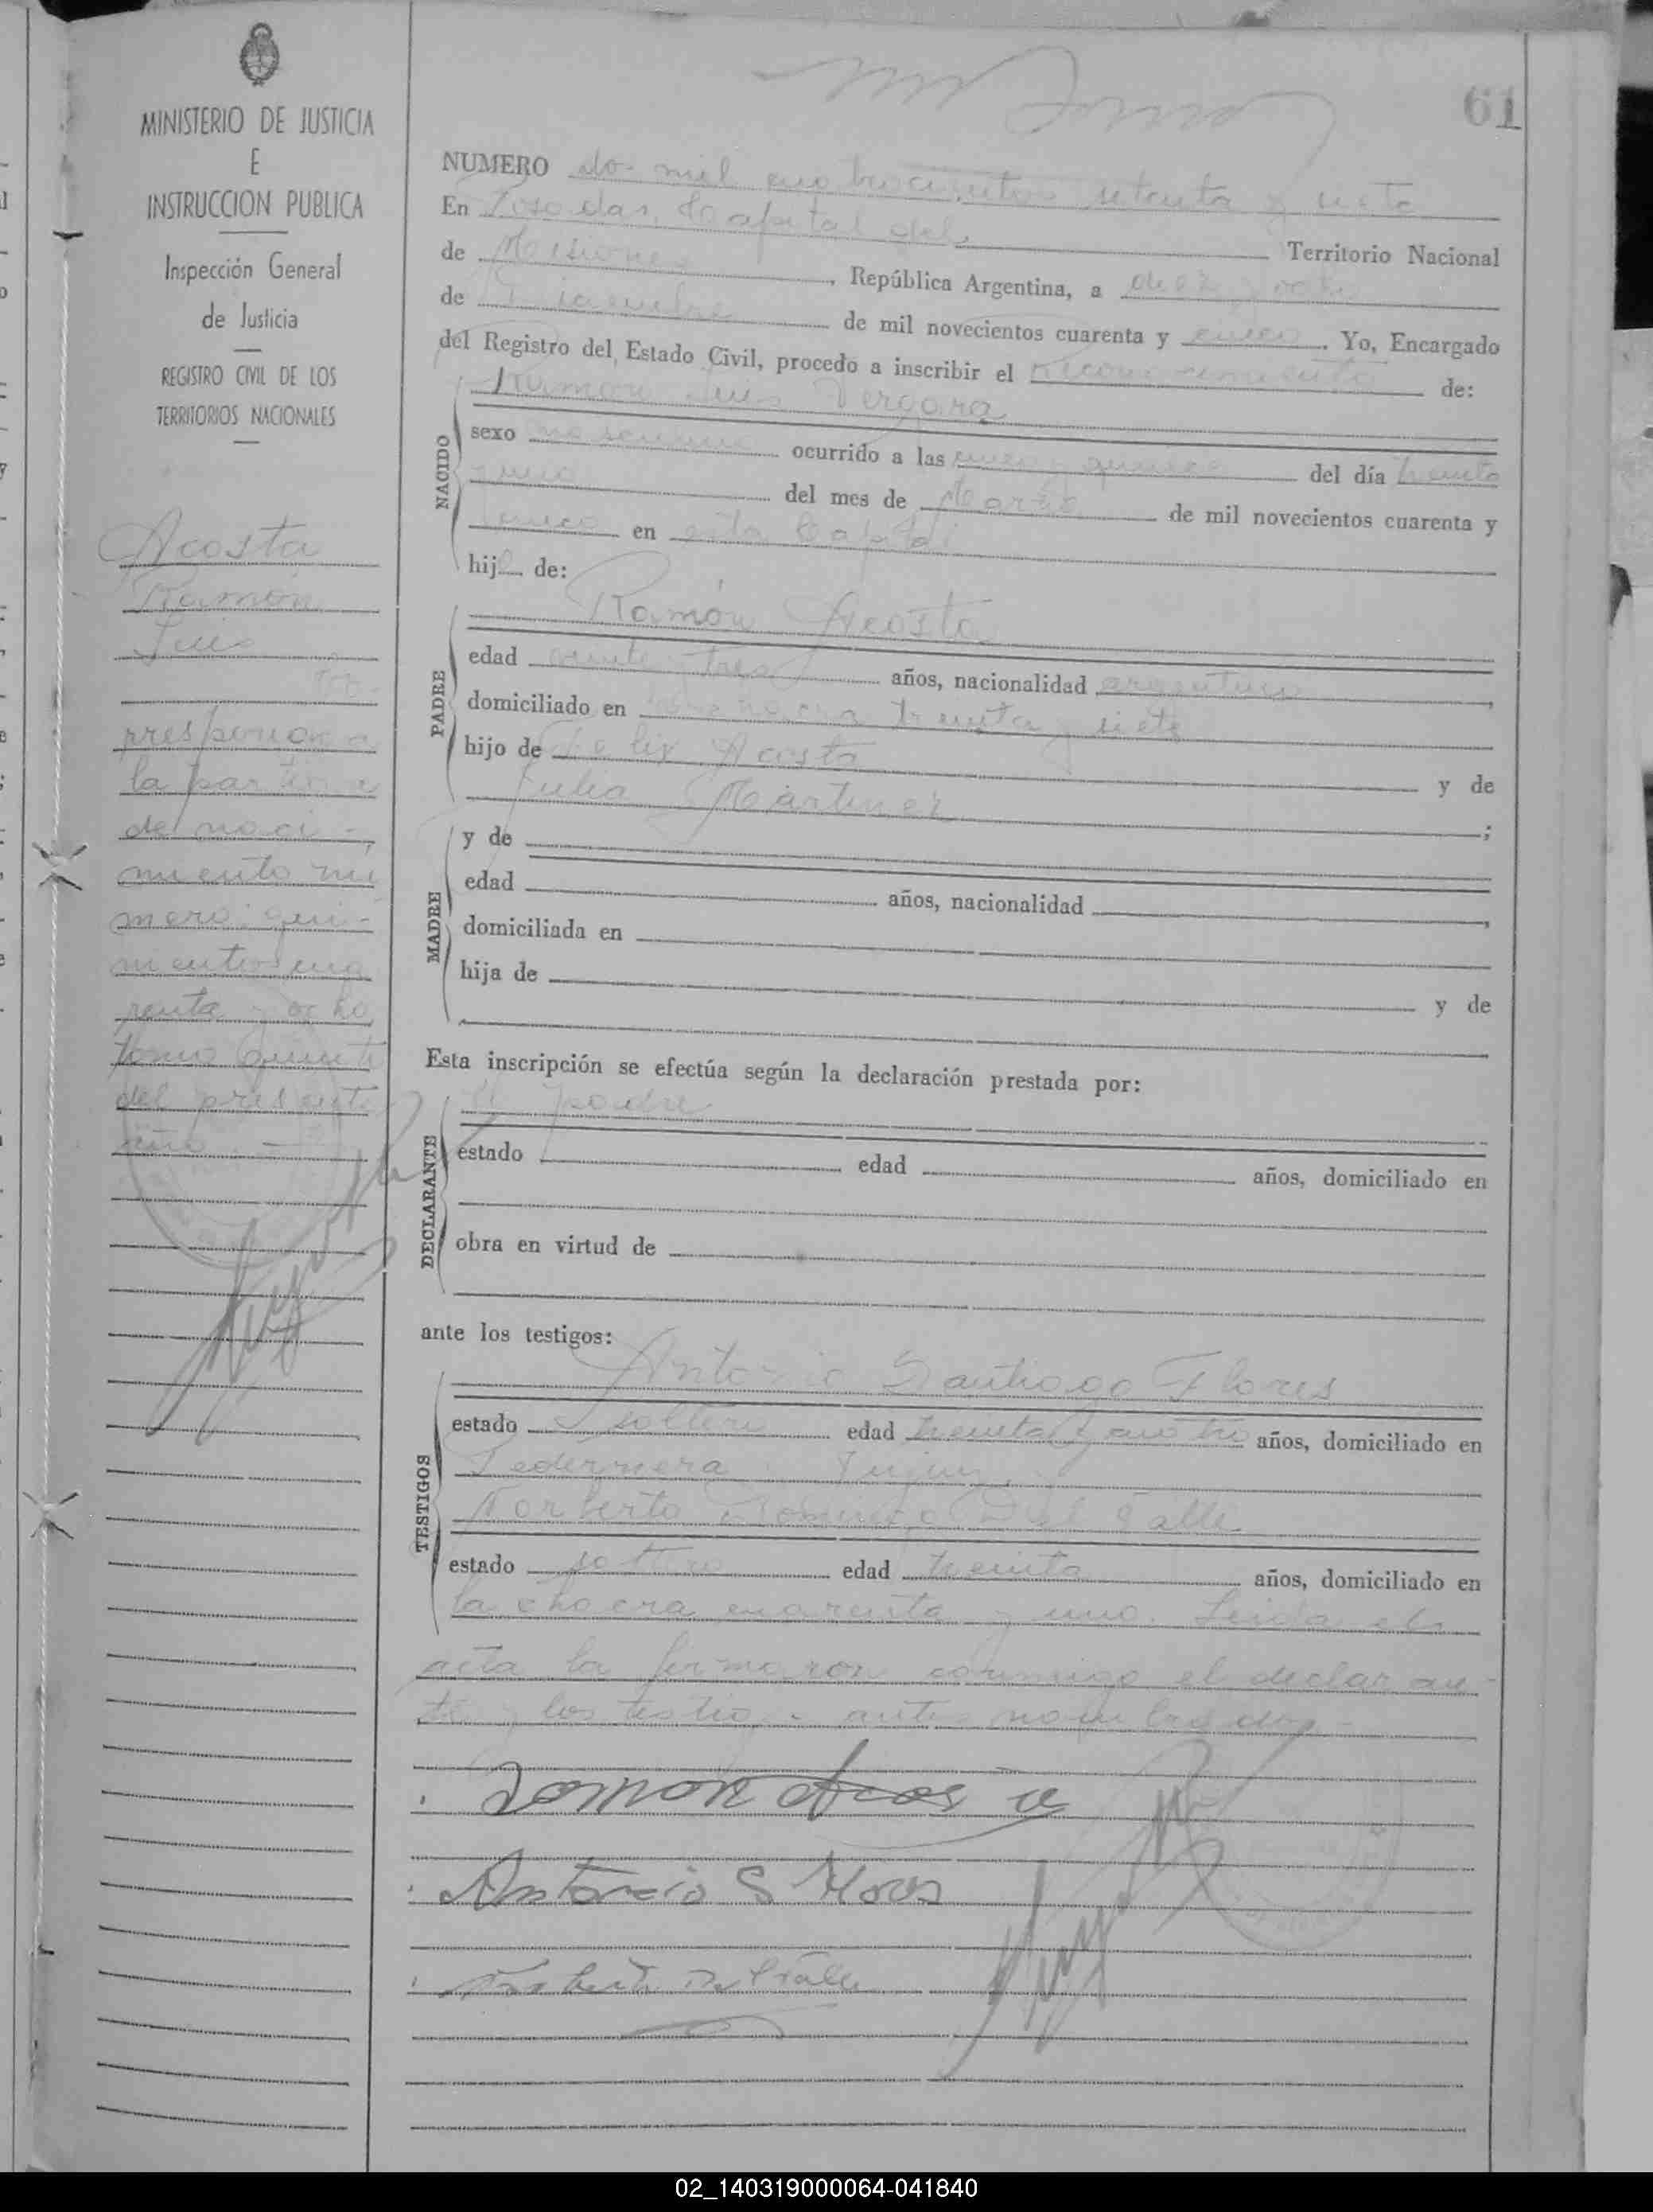 MINISTERIO DE JUSTICIA
E
INSTRUCCION PUBLICA
Inspección General
de Justicia
REGISTRO CIVIL DE LOS
TERRITORIOS NACIONALES
Acosta
Ramón
Luis
la partida
de naci-
miento nú
mero: qui-
nientos cua
renta y ocho
tomo quinto
del presente
año. —
61
NUMERO dos mil cuatrocientos setenta y siete
En Posadas, Capital del Territorio Nacional
de Misiones, República Argentina, a diez y ocho
de de mil novecientos cuarenta y cinco. Yo, Encargado
del Registro del Estado Civil, procedo a inscribir el Reconocimiento de:
NACIDO
Ramón Luis Vergara
sexo masculino ocurrido a las y quince del día treinta
y uno del mes de Marzo de mil novecientos cuarenta y
cinco en esta Capital
hijo de:
PADRE
Ramón Acosta
edad veinte y tres años, nacionalidad argentino
domiciliado en chacra treinta y siete
hijo de Felix Acosta y de
Julia Martinez;
MADRE
y de
edad años, nacionalidad
domiciliada en
hija de y de
Esta inscripción se efectúa según la declaración prestada por:
DECLARANTE
el padre
estado edad años, domiciliado en
obra en virtud de
ante los testigos:
TESTIGOS
Antonio Santiago Flores
estado soltero edad treinta y cuatro años, domiciliado en
Norberto Domingo Del Valle
estado soltero edad treinta años, domiciliado en
la chacra cuarenta y uno. Leida el
acta la firmaron conmigo el declaran-
te y los testigos antes nombrados-
Ramon Acosta
Antonio S Flores
Norberto Del Valle
02_140319000064-041840